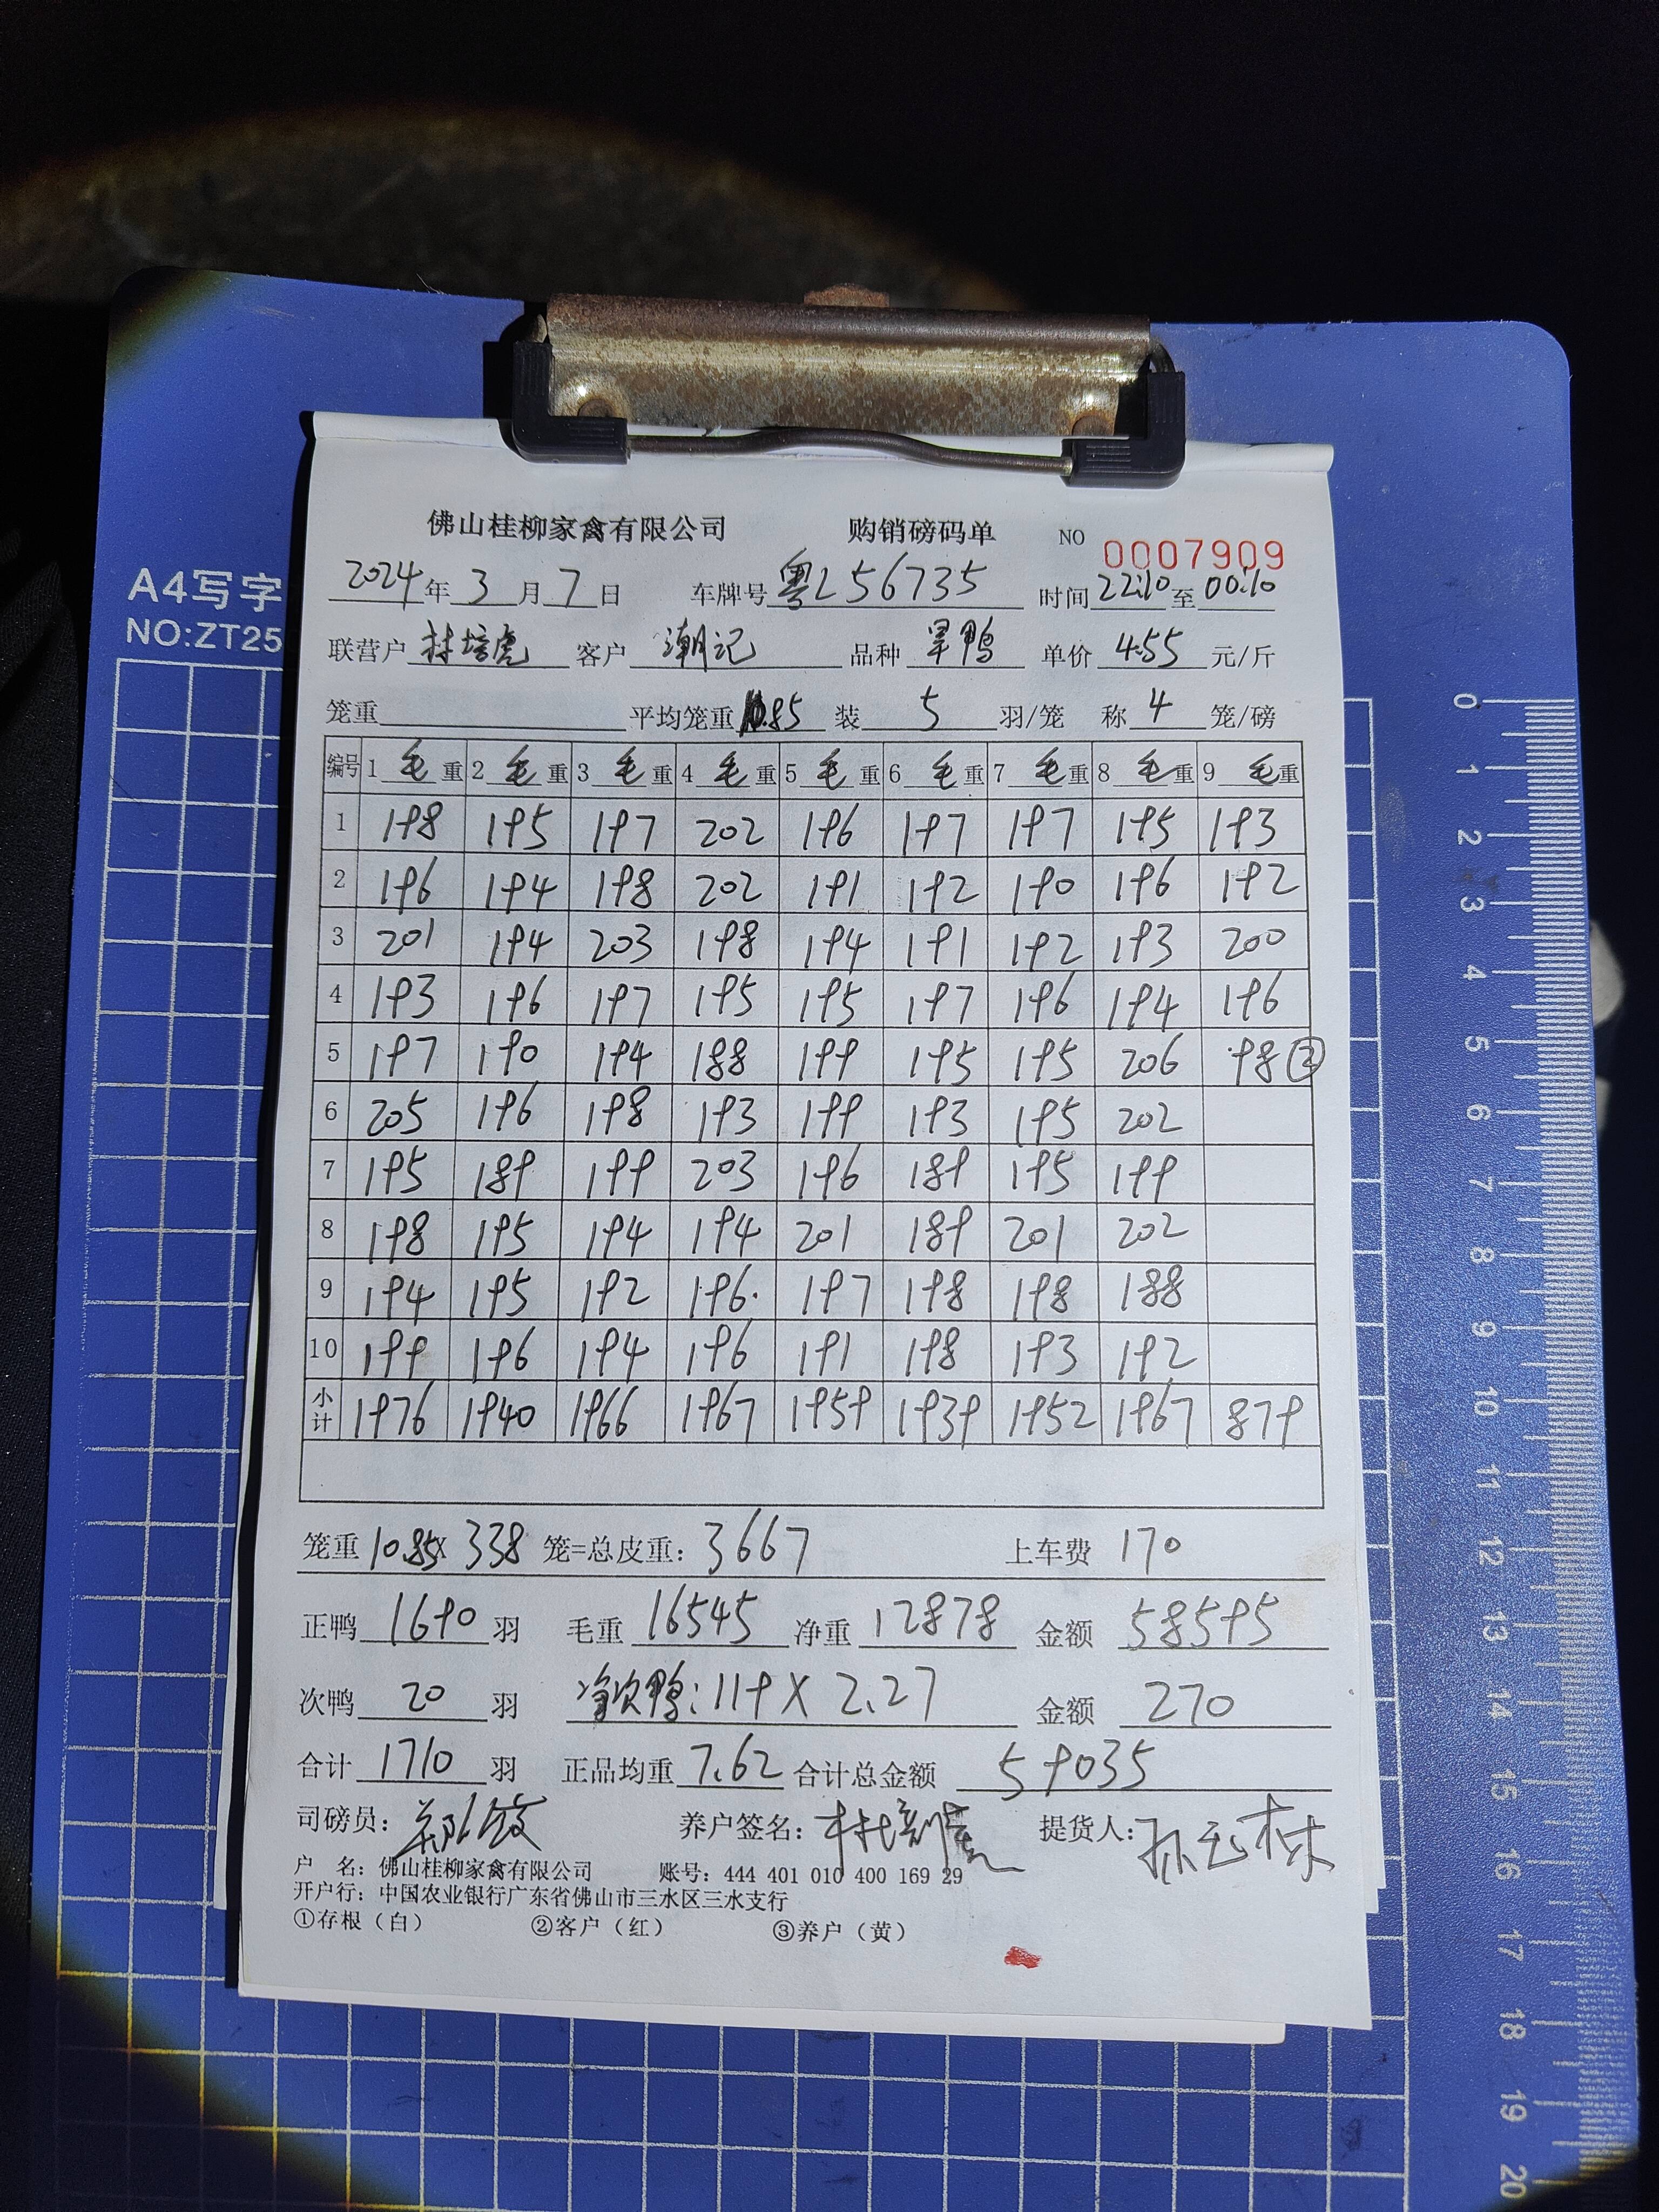 佛山桂柳家禽有限公司 购销磅码单 NO 0007909
A4写字
NO:ZT25
2024年3月7日 车牌号 粤L56735 时间 22:10 至 00:10
联营户 林培虎 客户 潮记 品种 旱鸭 单价 4.55 元/斤
笼重 平均笼重 10.85 装 5 羽/笼 称 4 笼/磅
编号 1 毛 重 2 毛 重 3 毛 重 4 毛 重 5 毛 重 6 毛 重 7 毛 重 8 毛 重 9 毛 重
1 198 195 197 202 196 197 197 195 193
2 196 194 198 202 191 192 190 196 192
3 201 194 203 198 194 191 192 193 200
4 193 196 197 195 195 197 196 194 196
5 197 190 194 188 199 195 195 206 98 ②
6 205 196 198 193 199 193 195 202
7 195 189 199 203 196 189 195 199
8 198 195 194 194 201 189 201 202
9 194 195 192 196. 197 198 198 188
10 199 196 194 196 191 198 193 192
小计 1976 1940 1966 1967 1959 1939 1952 1967 879
笼重 10.85X 338 笼=总皮重: 3667 上车费 170
正鸭 1690 羽 毛重 16545 净重 12878 金额 58595
次鸭 20 羽 次鸭: 119 X 2.27 金额 270
合计 1710 羽 正品均重 7.62 合计总金额 59035
司磅员: 养户签名: 林培虎 提货人:
户 名: 佛山桂柳家禽有限公司 账号: 444 401 010 400 169 29
开户行: 中国农业银行广东省佛山市三水区三水支行
①存根（白） ②客户（红） ③养户（黄）
0
1
2
3
4
5
6
7
8
9
10
11
12
13
14
15
16
17
18
19
20